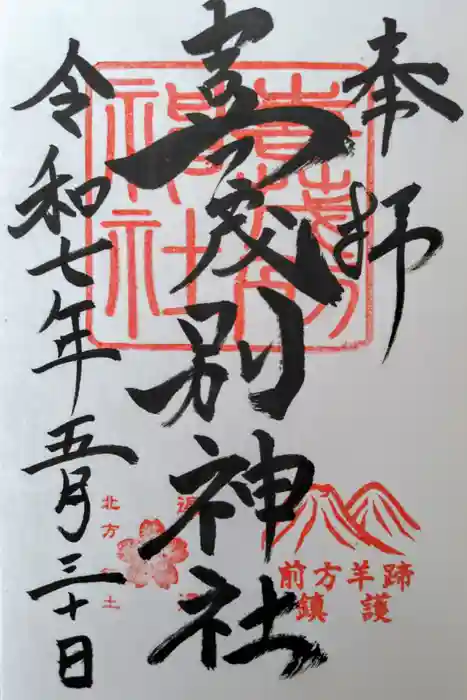 奉拝
喜茂別神社
令和七年五月三十日
喜茂別
神社
前方羊蹄
鎮護
北方領土